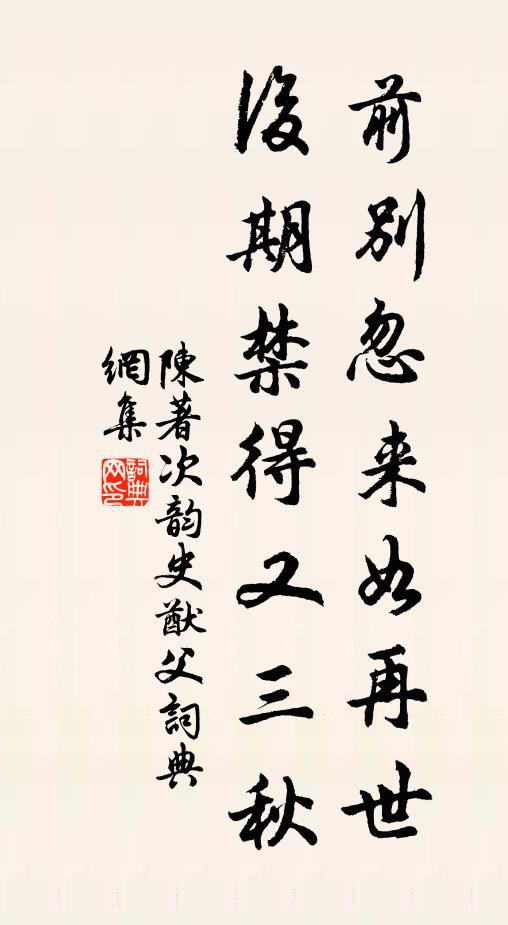 前別忽来如再世
後期禁得又三秋
陳著次韵史猷父詞典
網集
詞典
网印